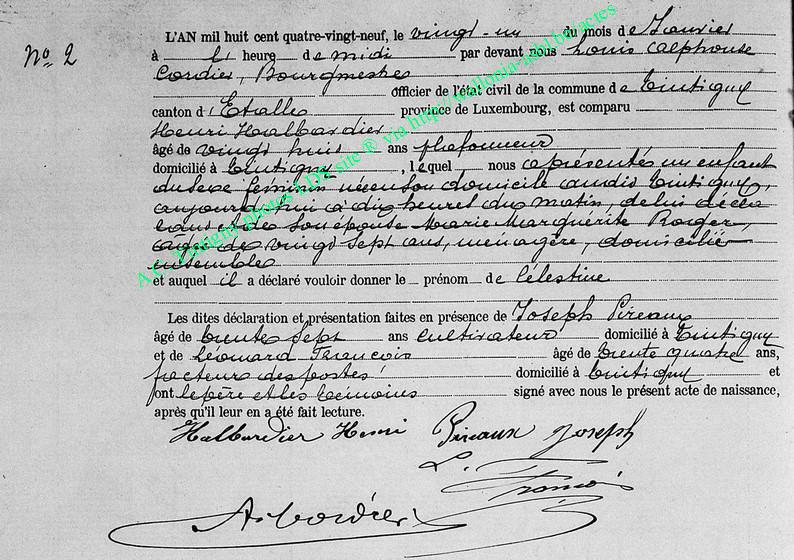 No. 2
L'AN mil huit cent quatre-vingt-neuf, le vingt-un du mois de Janvier
à l' heure de midi par devant nous Louis Alphonse
Cordier, Bourgmestre
officier de l'état civil de la commune de Tintigny
canton d'Etalle province de Luxembourg, est comparu
Henri Halbardier
âgé de vingt huit ans plafonneur
domicilié à Tintigny, lequel nous a présenté un enfant
du sexe féminin né en son domicile audit Tintigny,
aujourd'hui à dix heures du matin, de lui décla
rant et de son épouse Marie Marguérite Roger,
âgée de vingt sept ans, ménagère, domicilié
ensemble
et auquel il a déclaré vouloir donner le prénom de Célestine
Les dites déclaration et présentation faites en présence de Joseph Pireaux
âgé de trente sept ans cultivateur domicilié à Tintigny
et de Léonard François âgé de trente quatre ans,
facteur des postes domicilié à Tintigny et
ont le père et les témoins signé avec nous le présent acte de naissance,
après qu'il leur en a été fait lecture.
Halbardier Henri Pireaux Joseph
L. François
A. Cordier
A.C. Tintigny photos LDS site ® via http://wallonia-asbl.be/actes